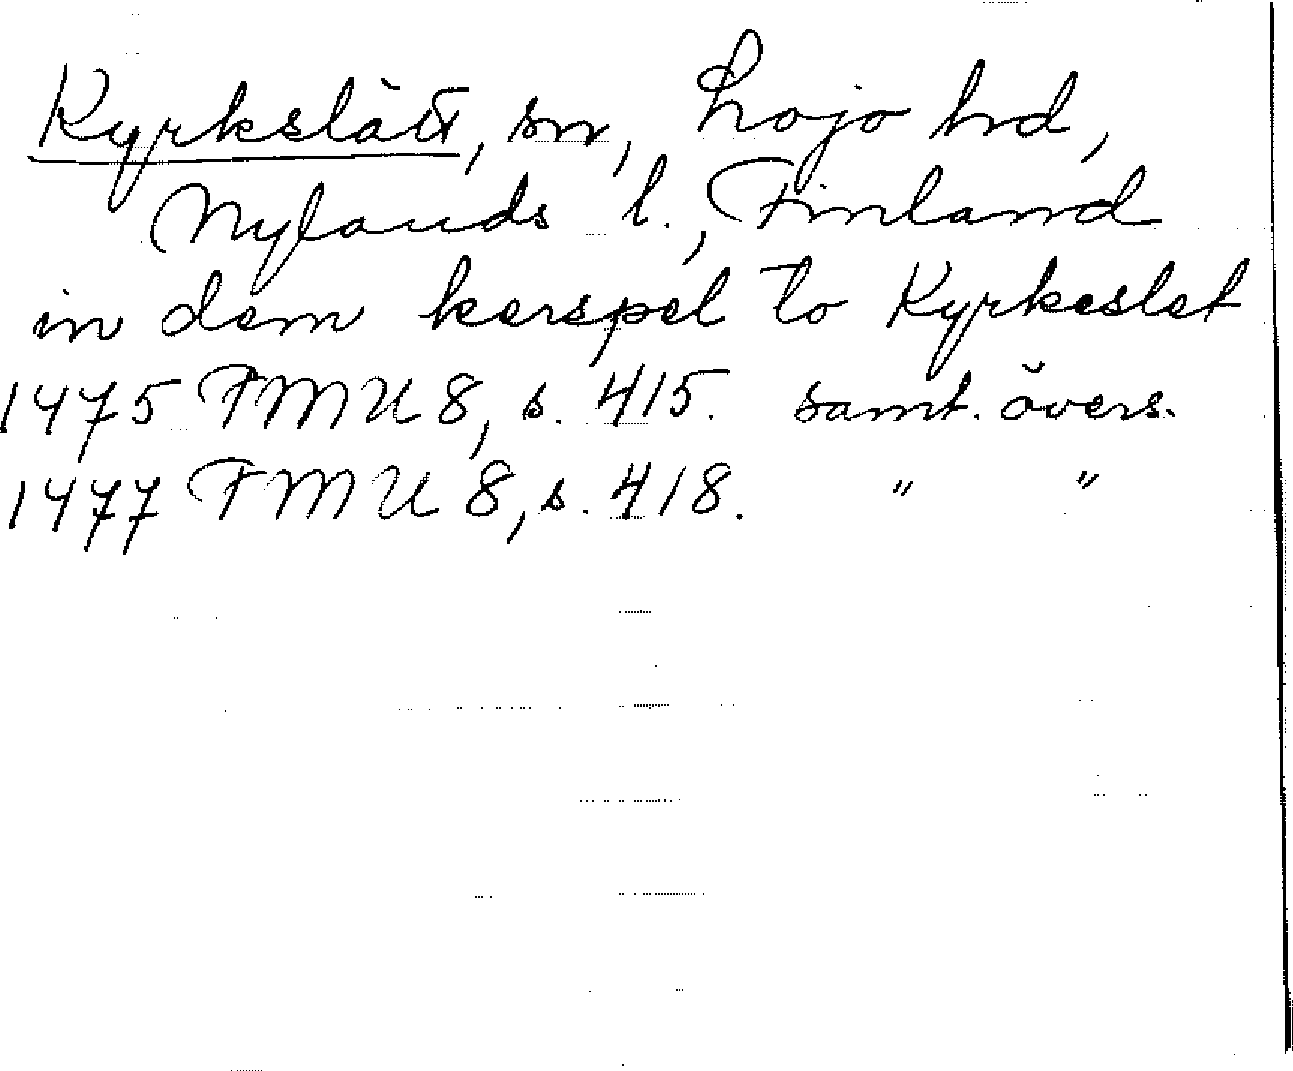 Kyrkslätt, sn, Lojo hrd,
Nylands l., Finland
in dem kerspel to Kyrkeslet
1475 FMU 8, s. 415. samt. övers.
1477 FMU 8, s. 418. " "